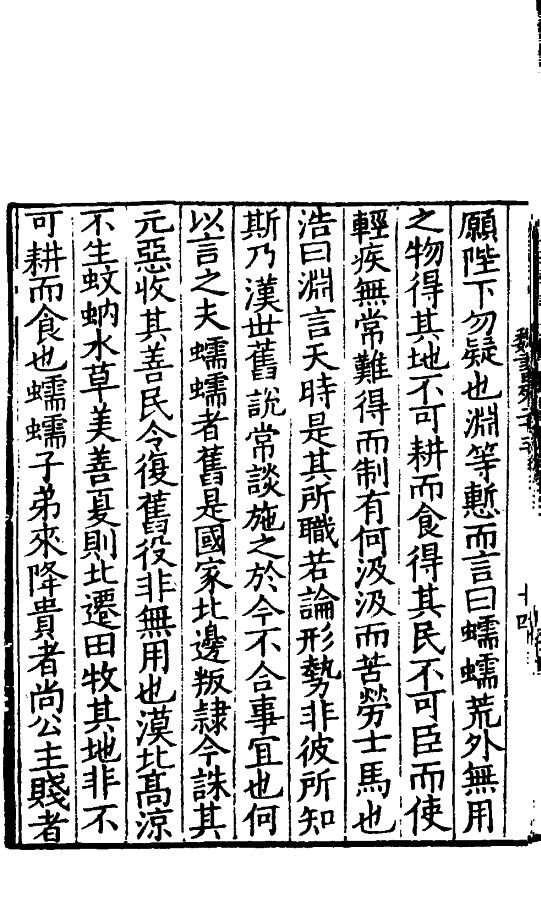 願陛下勿疑也淵等慙而言曰蠕蠕荒外無用
之物得其地不可耕而食得其民不可臣而使
輕疾無常難得而制有何汲汲而苦勞士馬也
浩曰淵言天時是其所職若論形勢非彼所知
斯乃漢世舊說常談施之於今不合事宜也何
以言之夫蠕蠕者舊是國家北邊叛隷今誅其
元惡收其善民令復舊役非無用也漠北高涼
不生蚊蚋水草美善夏則北遷田牧其地非不
可耕而食也蠕蠕子弟來降貴者尚公主賤者